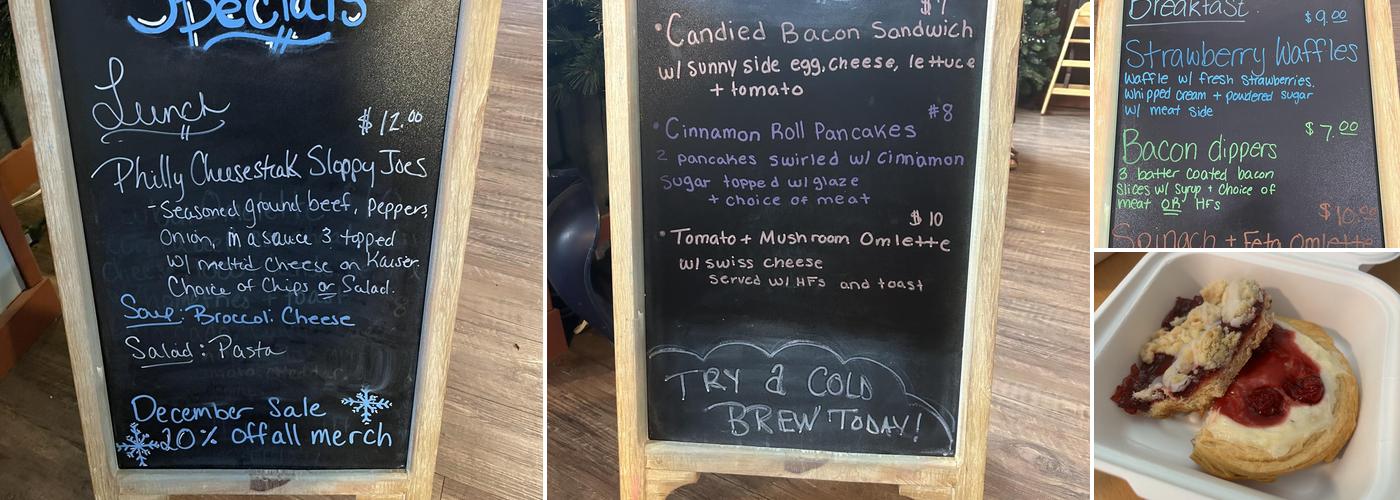 Specials
Lunch
$12.00
Philly Cheesesteak Sloppy Joes
-Seasoned ground beef, Peppers,
Onion, in a sauce 3 topped
w/ meltid cheese on Kaiser.
Choice of Chips or Salad.
Soup: Broccoli Cheese
Salad: Pasta
December Sale
20% Off all merch
$7
• Candied Bacon Sandwich
w/ sunny side egg, cheese, lettuce
+ tomato
#8
• Cinnamon Roll Pancakes
2 pancakes swirled w/ cinnamon
sugar topped w/ glaze
+ choice of meat
$10
• Tomato + Mushroom Omlette
w/ swiss cheese
served w/ HFs and toast
TRY a COLD
BREW TODAY!
Breakfast
$9.00
Strawberry Waffles
Waffle w/ fresh strawberries,
whipped cream + powdered sugar
w/ meat side
$7.00
Bacon dippers
3 batter coated bacon
slices w/ syrup + choice of
meat OR HFs
$10.00
Spinach + Feta Omlette